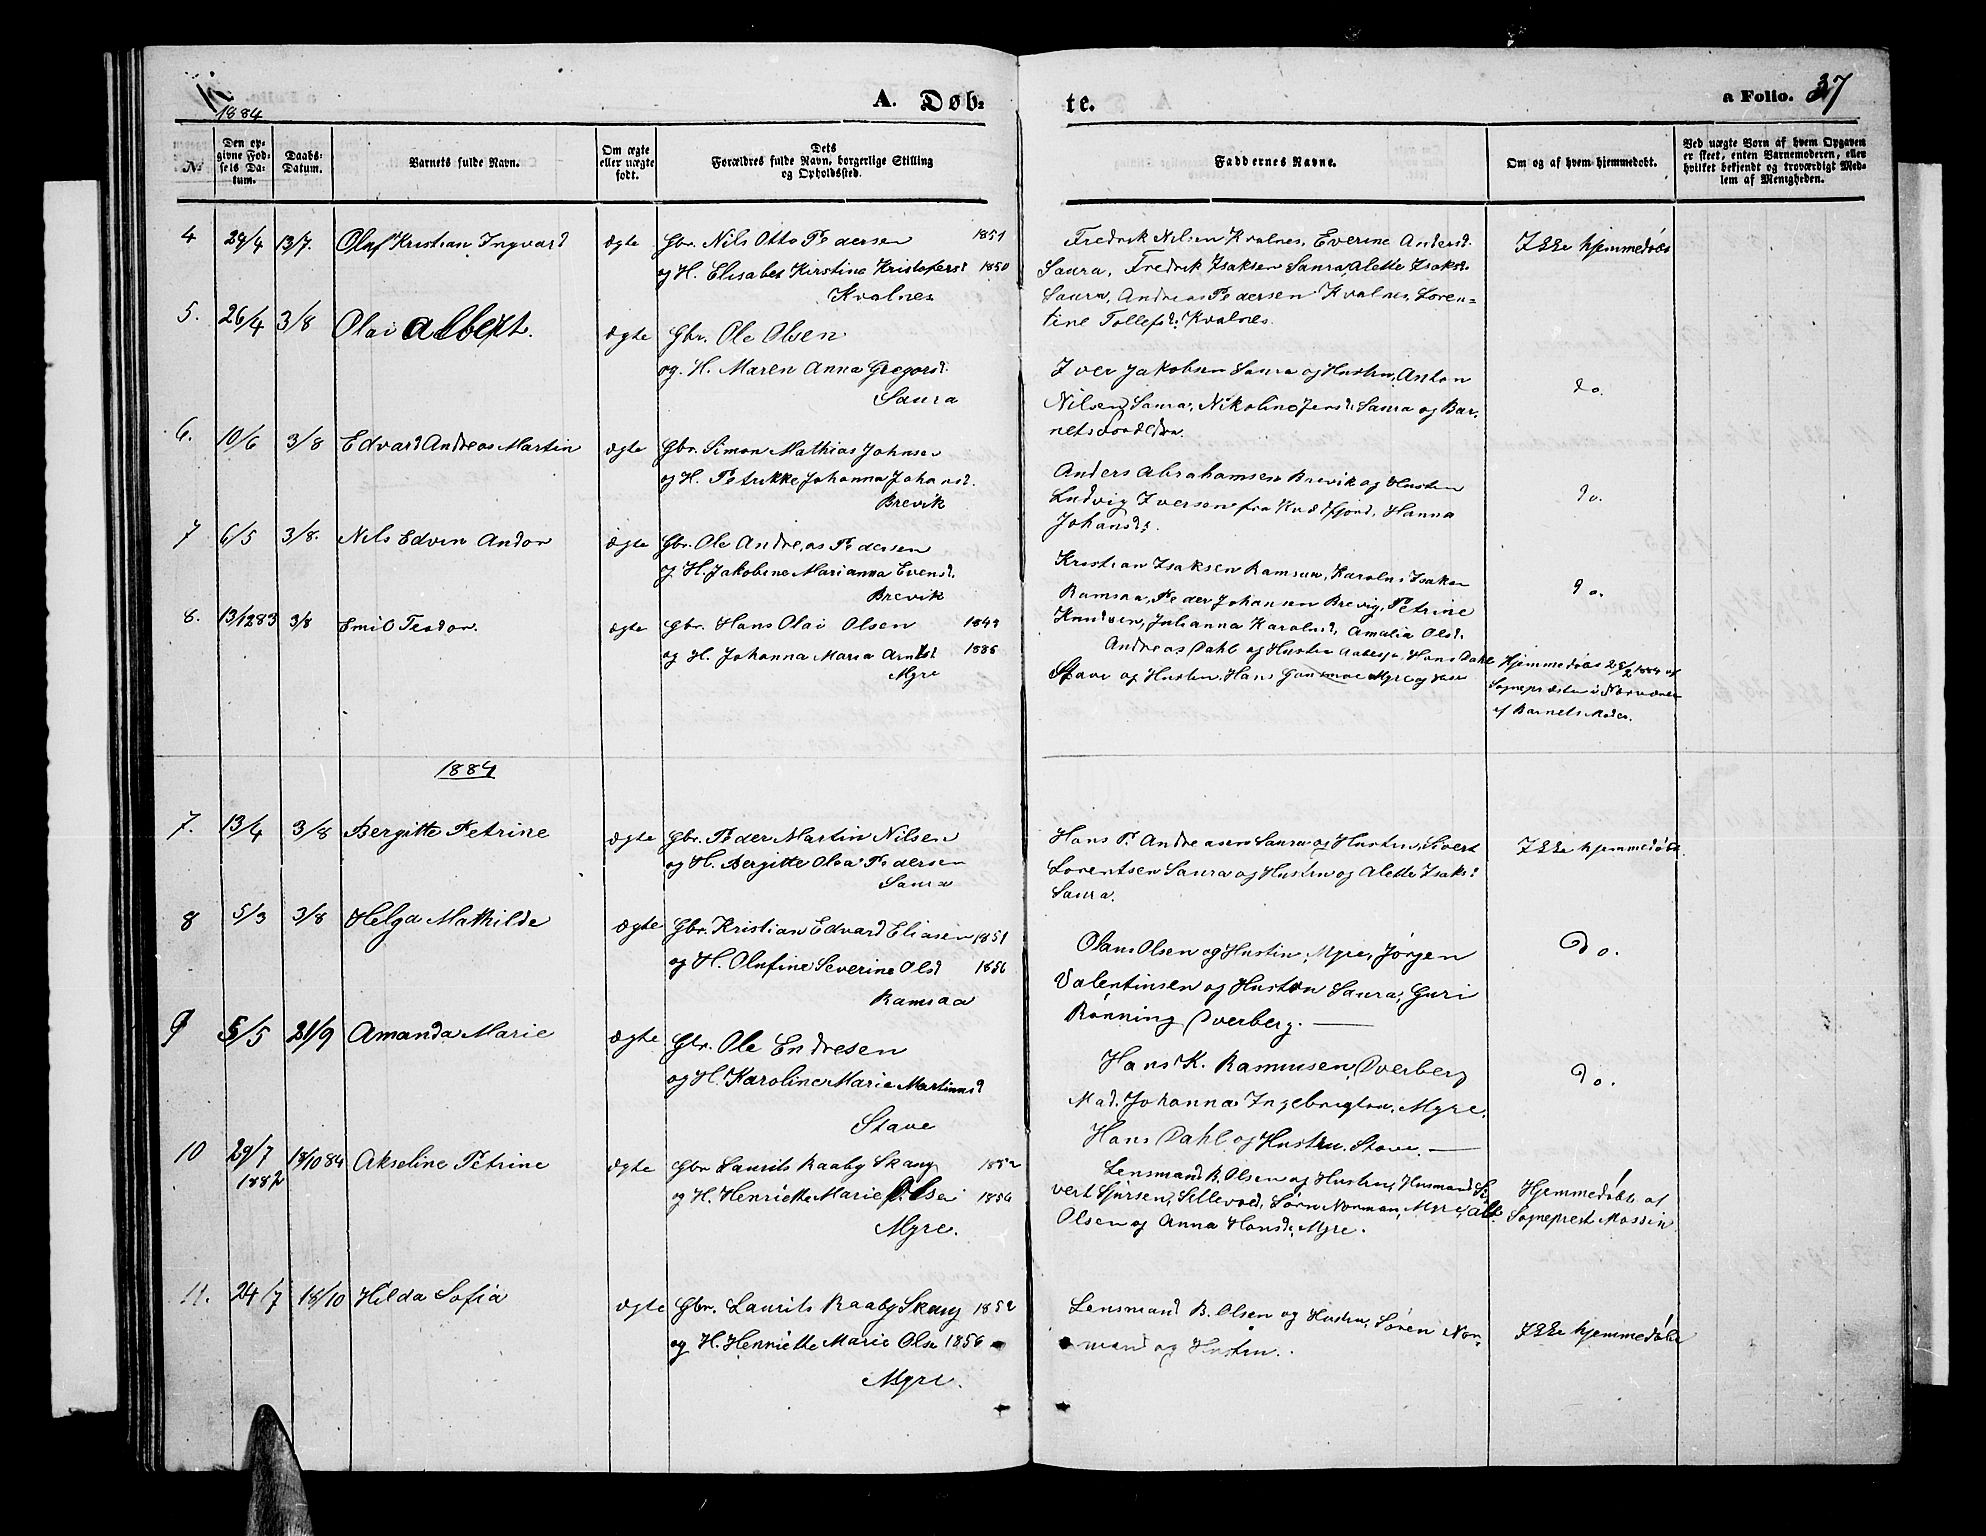 1884
A. Døb-
te.
a Folio. 37
No
Den op-
givne Fød-
sels Da-
tum.
Daabs-
Datum.
Barnets fulde Navn.
Om ægte
eller uægte
født.
Dets
Forældres fulde Navn, borgerlige Stilling
og Opholdssted.
Faddernes Navne.
Om og af hvem hjemmedøbt.
Ved uægte Børn af hvem Opgaven
er skeet, enten Barnemoderen, eller
hvilket bekjendt og troværdigt Med-
lem af Menigheden.
4 29/4 13/7. Olaf Kristian Ingvard ægte Gbr. Nils Otto Pedersen 1851
og H. Elisabet Kirstine Kristofersd 1850
Kvalnes
Fredrik Nilsen Kvalnes, Everine Andersd.
Saura, Fredrik Isaksen Saura, Alette Isaksd.
Saura, Andreas Pedersen Kvalnes, Loren-
tine Tollefsd. Kvalnes.
Ikke hjemmedøbt
5. 26/4 3/8 Olai Albert. ægte Gbr. Ole Olsen
og H. Maren Anna Gregorsd.
Saura
Iver Jakobsen Saura og Hustru, Anton
Nilsen Saura, Nikoline Jensd. Saura og Bar-
nets
do.
6. 10/6 3/8 Edvard Andreas Martin ægte Gbr. Simon Mathias Johnsen
og H. Petrikke Johanna Johansd.
Brevik
Anders Abrahamsen Brevik og Hustru
Ludvig Iversen fra Kvædfjord, Hanna
Johansd.
do.
7 6/5 3/8. Nils Edvin Andor ægte Gbr. Ole Andreas Pedersen
og H. Jakobine Marianna Evensd.
Brevik
Kristian Isaksen Ramsaa, Isaksen
Ramsaa, Peder Johansen Brevig, Petrine
Knudsen, Julianna Karolsd, Amalia Olsd.
do.
8. 13/1283 3/8 Emil Teodor. ægte Gbr. Hans Olai Olsen 1849
og H. Johanna Maria Arntsd 1886
Myre
Andreas Dahl og Hustru Hans Dahl
Stave og Hustru, Hans Myre og
Hjemmedøbt 28/2 1884 af
Sognepræsten i
af Barnets Moder.
1884
7. 13/4 3/8 Bergitte Petrine ægte Gbr. Peder Martin Nilsen
og H. Bergitte Olea Pedersen
Saura
Hans P. Andreasen Saura og Hustru, Sivert
Lorentsen Saura og Hustru og Alette Isaksd
Saura.
Ikke hjemmedøbt.
8 5/3 3/8 Helga Mathilde ægte Gbr. Kristian Edvard Eliasen 1851
og H. Olufine Severine Olsd 1856
Ramsaa
Olaus Olsen og Hustru, Myre, Jørgen
Valentinsen og Hustru Saura, Guri
Rønning Dverberg.
Do.
9 5/5 21/9 Amanda Marie ægte Gbr. Ole Endresen
og H. Karoline Marie Martinusd
Stave
Hans K. Rasmussen, Dverberg
Mad. Johanna Ingebrigtsen, Myre,
Hans Dahl og Hustru Stave.
Do.
10 29/7 1882 18/1084 Akseline Petrine ægte Gbr Laurits Raaby Skaug 1852
og H. Henriette Marie Olsen 1856
Myre.
Lensmand B. Olsen og Hustru, Husmand Si-
vert Sjursen, Sellevold, Sørn Norman, Myre, Alb.
Olsen og Anna Hansd. Myre.
Hjemmedøbt af
Sogneprest Mossin
11. 24/7 18/10 Hilda Sofia ægte Gbr. Laurits Raaby Skaug 1852
og H. Henriette Marie Olsen 1856
Myre.
Lensmand B. Olsen og Hustru, Søren Nor-
mand og Hustru.
Ikke hjemmedøbt